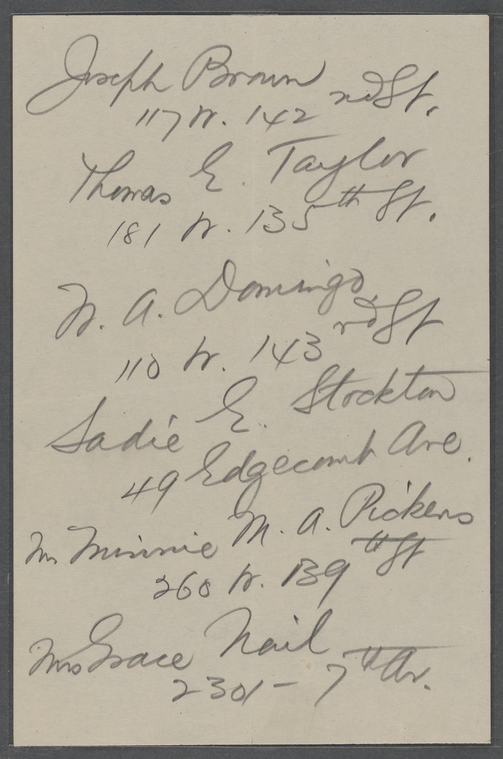 Joseph Brown
117 W. 142nd St.
Thomas E. Taylor
181 W. 135th St.
W. A. Domingo
110 W. 143rd St
Sadie E. Stockton
49 Edgecomb Ave.
Mrs Minnie M. A. Pickens
260 W. 139th St
Mrs Grace Nail
2301 - 7th Av.